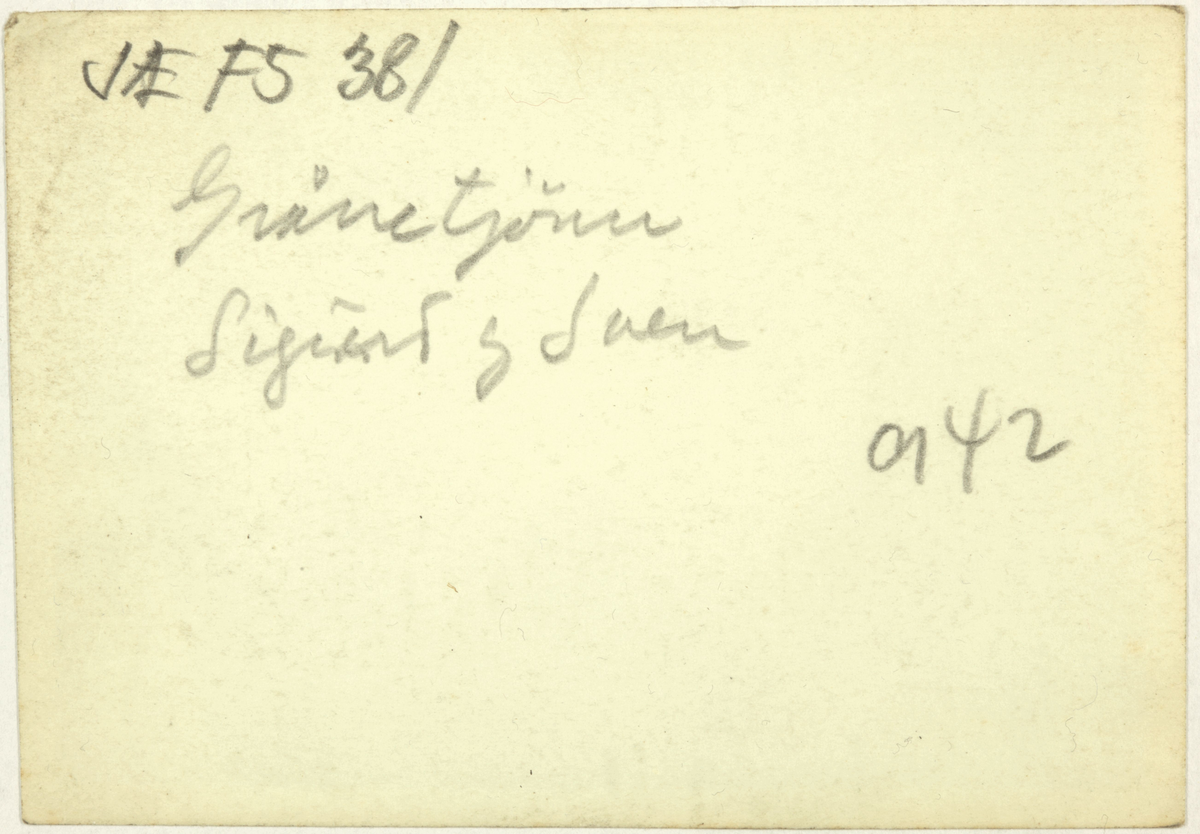 JÆ F5 381
Grånetjönn
Sigurd og Sven
a 42